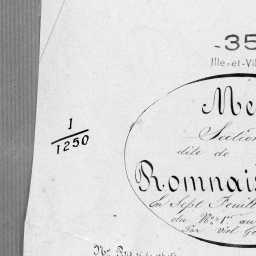 -35
Ille-et-Vil
1/1250
Me
Section
dite de
Romnais
En Sept Feuill
du Nº 1er au
Par Mol G